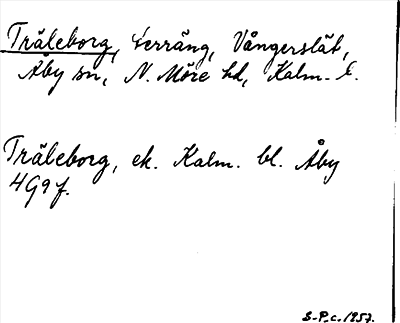 Träleborg, terräng, Vångerslät,
Åby sn, N. Möre hd, Kalm. l.
Träleborg, ek. Kalm. bl. Åby
4G9f.
S-P.c. 1957.